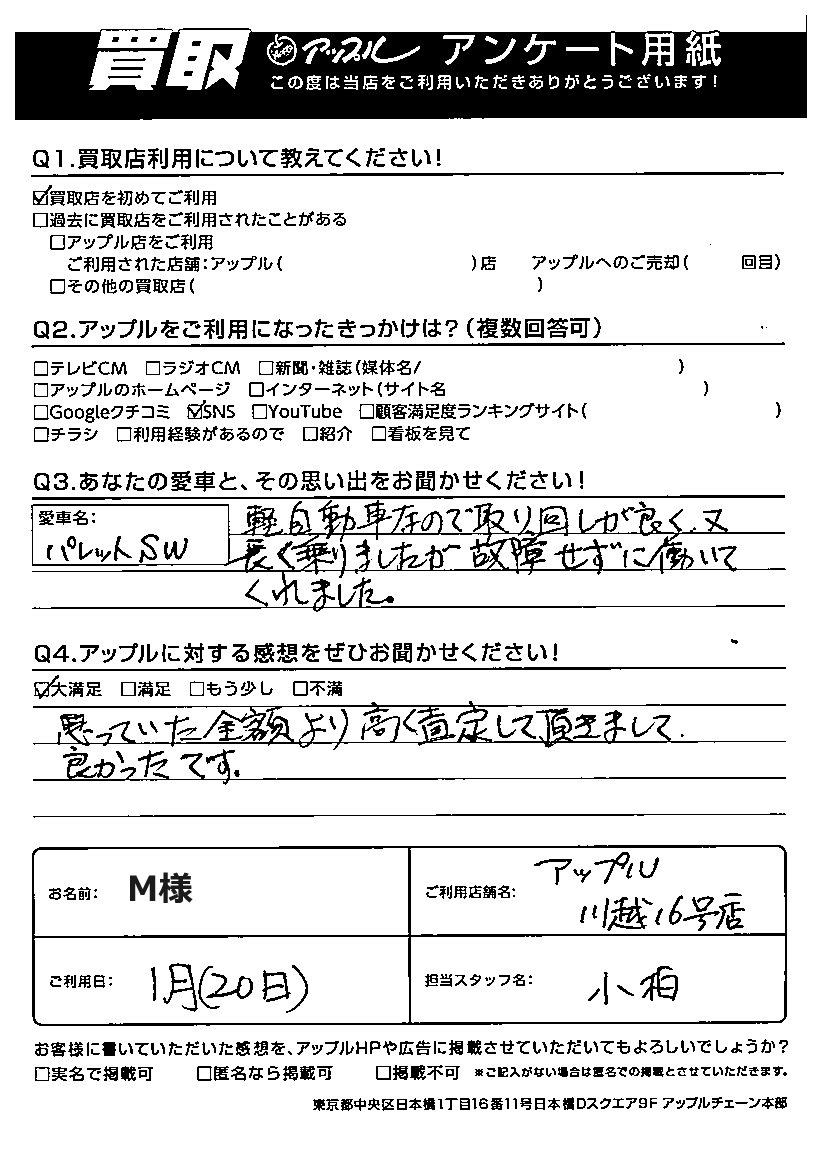 買取 アップル アンケート用紙
この度は当店をご利用いただきありがとうございます!
Q1.買取店利用について教えてください!
☑買取店を初めてご利用
□過去に買取店をご利用されたことがある
□アップル店をご利用
ご利用された店舗:アップル( )店 アップルへのご売却( 回目)
□その他の買取店( )
Q2.アップルをご利用になったきっかけは?(複数回答可)
□テレビCM □ラジオCM □新聞・雑誌(媒体名/ )
□アップルのホームページ □インターネット(サイト名 )
□Googleクチコミ ☑SNS □YouTube □顧客満足度ランキングサイト( )
□チラシ □利用経験があるので □紹介 □看板を見て
Q3.あなたの愛車と、その思い出をお聞かせください!
愛車名:
パレットSW
軽自動車なので取り回しが良く、又
長く乗りましたが故障せずに働いて
くれました。
Q4.アップルに対する感想をぜひお聞かせください!
☑大満足 □満足 □もう少し □不満
思っていた金額より高く査定して頂きまして
良かったです。
お名前: M様
ご利用店舗名: アップル
川越16号店
ご利用日: 1月(20日)
担当スタッフ名: 小柏
お客様に書いていただいた感想を、アップルHPや広告に掲載させていただいてもよろしいでしょうか?
□実名で掲載可 □匿名なら掲載可 □掲載不可 ※ご記入がない場合は匿名での掲載とさせていただきます。
東京都中央区日本橋1丁目16番11号日本橋Dスクエア9F アップルチェーン本部